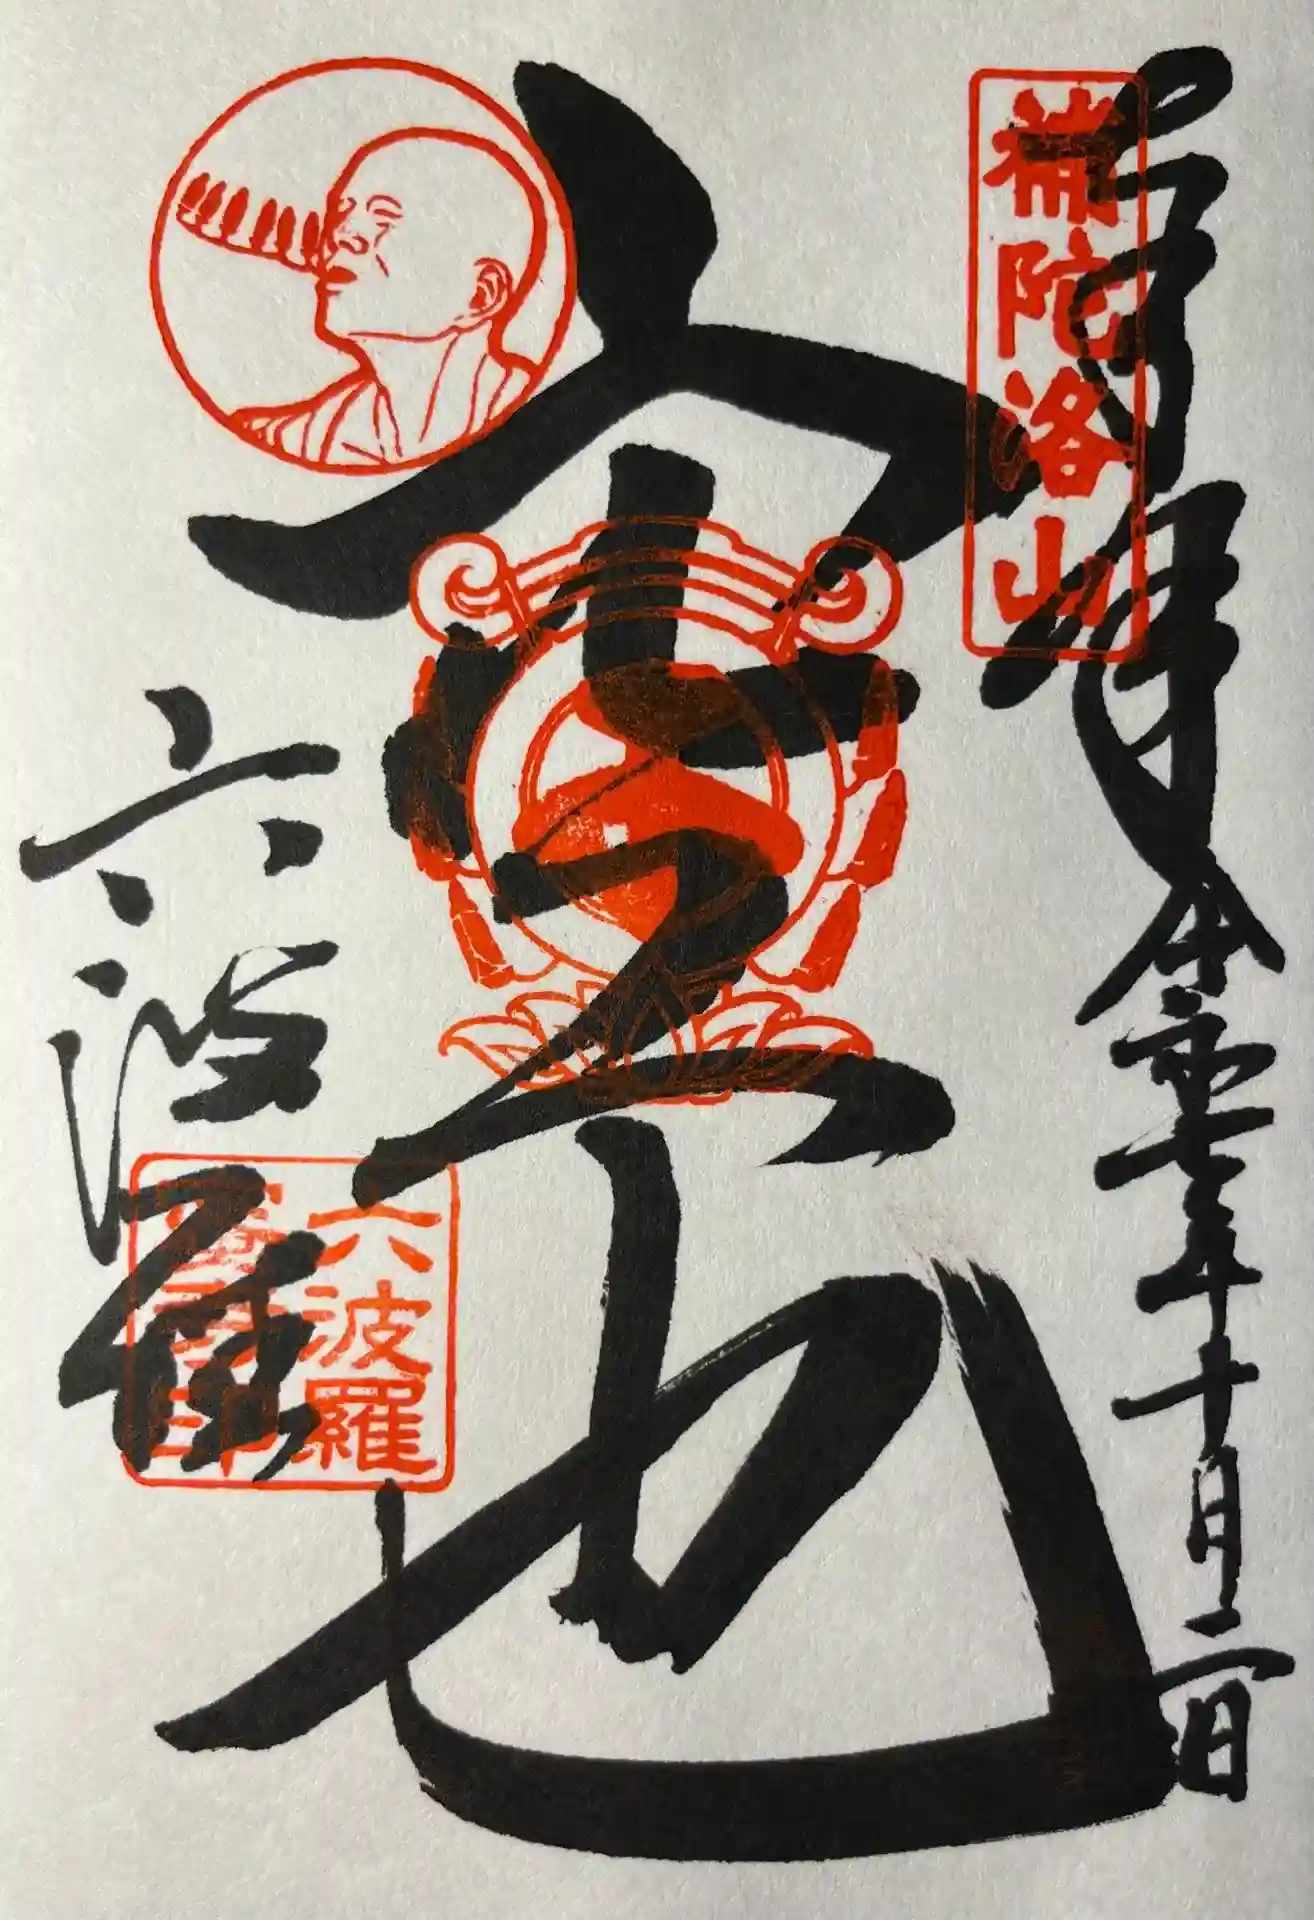 補陀洛山
奉拝
令和七年十月二日
空也
六波羅
六波羅